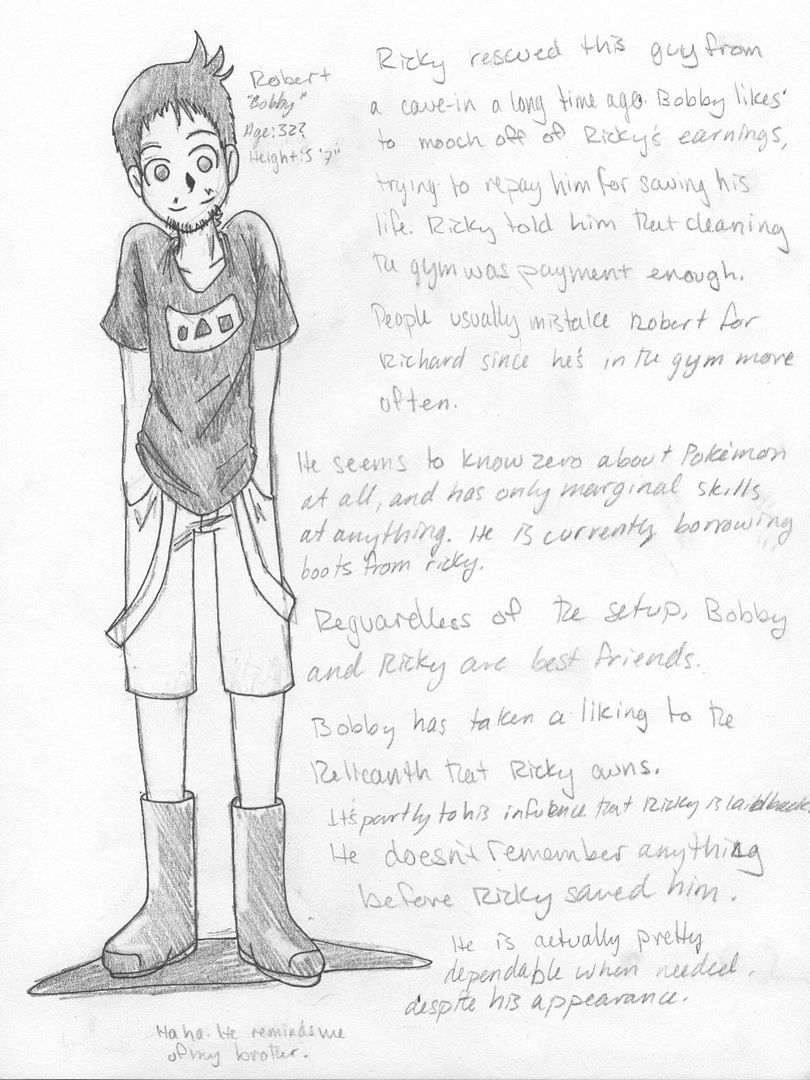 Robert
"Bobby"
Age: 32?
Height: 5'7"
Ricky rescued this guy from
a cave-in a long time ago. Bobby likes
to mooch off of Ricky's earnings,
trying to repay him for saving his
life. Ricky told him that cleaning
the gym was payment enough.
People usually mistake Robert for
Richard since he's in the gym more
often.
He seems to know zero about Pokémon
at all, and has only marginal skills
at anything. He is currently borrowing
boots from ricky.
Reguardless of the setup, Bobby
and Ricky are best friends.
Bobby has taken a liking to the
Relicanth that Ricky owns.
It's partly to his infulence that Ricky is laidback.
He doesn't remember anything
before Ricky saved him.
He is actually pretty
dependable when needed,
despite his appearance.
Haha. He reminds me
of my brother.